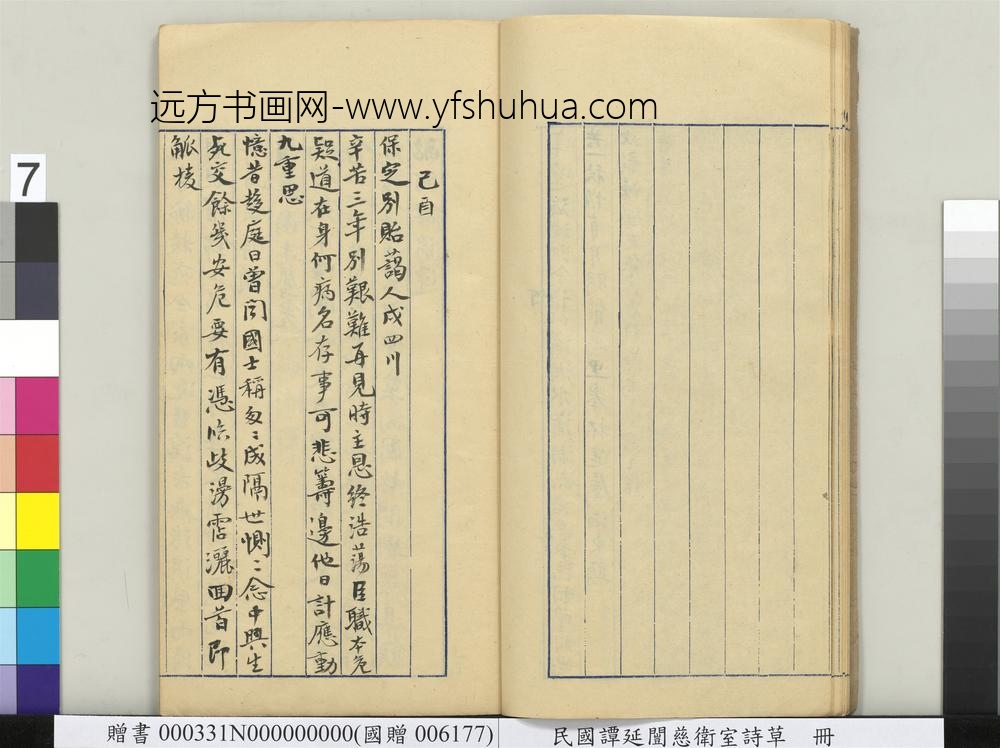 远方书画网-www.yfshuhua.com
己酉
保定別貽藹人戍四川
辛苦三年別艱難再見時主恩終浩蕩臣職本危
疑道在身何病名存事可悲籌邊他日計應動
九重思
憶昔趨庭日曾聞國士稱匆〻成隔世惻〻念中興生
死交餘幾安危要有憑臨歧漫霑灑回首即
觚棱
7
贈書 000331N000000000(國贈 006177)
民國譚延闓慈衛室詩草 冊